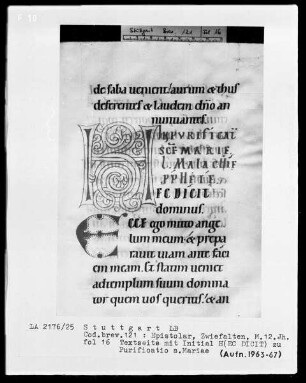 Stuttgart Brev. 121 Bl. 16
de saba uenient / aurum & thus
deferentes & laudem dño an
nuntiantes.
IN PURIFICAT
SCE MARIE
L MALACHIE
PPHETIE
EC DICIT
dominus.
ECCE ego mitto ange
lum meum & prepa
rabit uiam ante faci
em meam. Et statim ueniet
ad templum suum domina
tor quem uos queritis / & an
LA 2176/25 Stuttgart LB
Cod.brev.121 : Epistolar, Zwiefalten, M.12.Jh.
fol 16 Textseite mit Initial H(EC DICIT) zu
Purificatio s.Mariae (Aufn.1963-67)